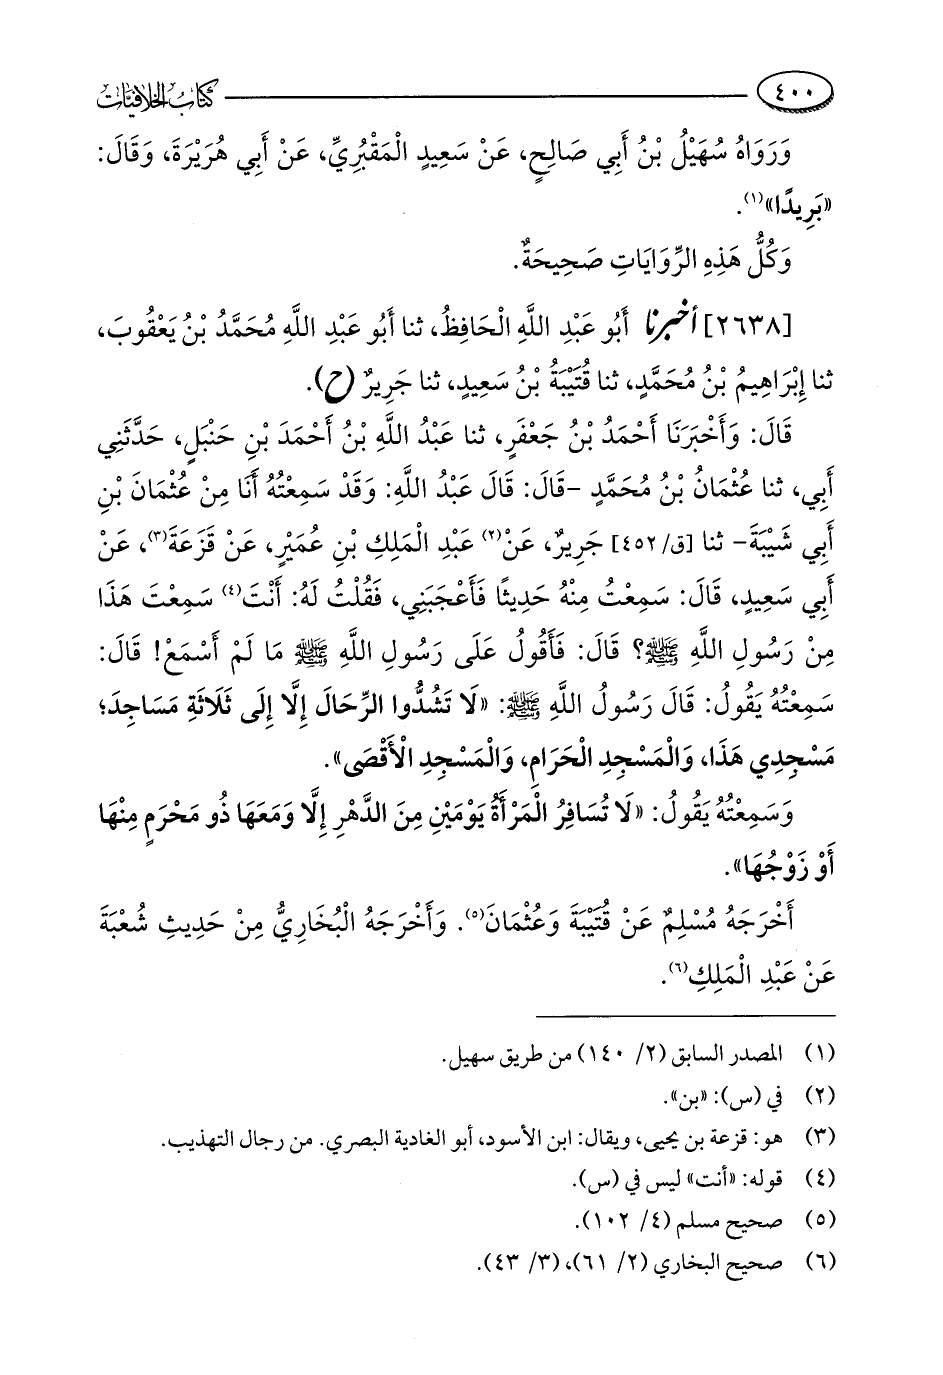 ٤٠٠ كتاب الخلافيات
وَرَوَاهُ سُهَيْلُ بْنُ أَبِي صَالِحٍ، عَنْ سَعِيدٍ الْمَقْبُرِيِّ، عَنْ أَبِي هُرَيْرَةَ، وَقَالَ:
«بَرِيدًا»(١).
وَكُلُّ هَذِهِ الرِّوَايَاتِ صَحِيحَةٌ.
[٢٦٣٨] أخبرنا أَبُو عَبْدِ اللَّهِ الْحَافِظُ، ثنا أَبُو عَبْدِ اللَّهِ مُحَمَّدُ بْنُ يَعْقُوبَ،
ثنا إِبْرَاهِيمُ بْنُ مُحَمَّدٍ، ثنا قُتَيْبَةُ بْنُ سَعِيدٍ، ثنا جَرِيرٌ (ح).
قَالَ: وَأَخْبَرَنَا أَحْمَدُ بْنُ جَعْفَرٍ، ثنا عَبْدُ اللَّهِ بْنُ أَحْمَدَ بْنِ حَنْبَلٍ، حَدَّثَنِي
أَبِي، ثنا عُثْمَانُ بْنُ مُحَمَّدٍ -قَالَ: قَالَ عَبْدُ اللَّهِ: وَقَدْ سَمِعْتُهُ أَنَا مِنْ عُثْمَانَ بْنِ
أَبِي شَيْبَةَ- ثنا [ق/٤٥٢] جَرِيرٌ، عَنْ(٢) عَبْدِ الْمَلِكِ بْنِ عُمَيْرٍ، عَنْ قَزَعَةَ(٣)، عَنْ
أَبِي سَعِيدٍ، قَالَ: سَمِعْتُ مِنْهُ حَدِيثًا فَأَعْجَبَنِي، فَقُلْتُ لَهُ: أَنْتَ(٤) سَمِعْتَ هَذَا
مِنْ رَسُولِ اللَّهِ ﷺ؟ قَالَ: فَأَقُولُ عَلَى رَسُولِ اللَّهِ ﷺ مَا لَمْ أَسْمَعْ! قَالَ:
سَمِعْتُهُ يَقُولُ: قَالَ رَسُولُ اللَّهِ ﷺ: «لَا تَشُدُّوا الرِّحَالَ إِلَّا إِلَى ثَلَاثَةِ مَسَاجِدَ؛
مَسْجِدِي هَذَا، وَالْمَسْجِدِ الْحَرَامِ، وَالْمَسْجِدِ الْأَقْصَى».
وَسَمِعْتُهُ يَقُولُ: «لَا تُسَافِرُ الْمَرْأَةُ يَوْمَيْنِ مِنَ الدَّهْرِ إِلَّا وَمَعَهَا ذُو مَحْرَمٍ مِنْهَا
أَوْ زَوْجُهَا».
أَخْرَجَهُ مُسْلِمٌ عَنْ قُتَيْبَةَ وَعُثْمَانَ(٥). وَأَخْرَجَهُ الْبُخَارِيُّ مِنْ حَدِيثِ شُعْبَةَ
عَنْ عَبْدِ الْمَلِكِ(٦).
(١) المصدر السابق (٢/ ١٤٠) من طريق سهيل.
(٢) في (س): «بن».
(٣) هو: قزعة بن يحيى، ويقال: ابن الأسود، أبو الغادية البصري. من رجال التهذيب.
(٤) قوله: «أنت» ليس في (س).
(٥) صحيح مسلم (٤/ ١٠٢).
(٦) صحيح البخاري (٢/ ٦١)، (٣/ ٤٣).